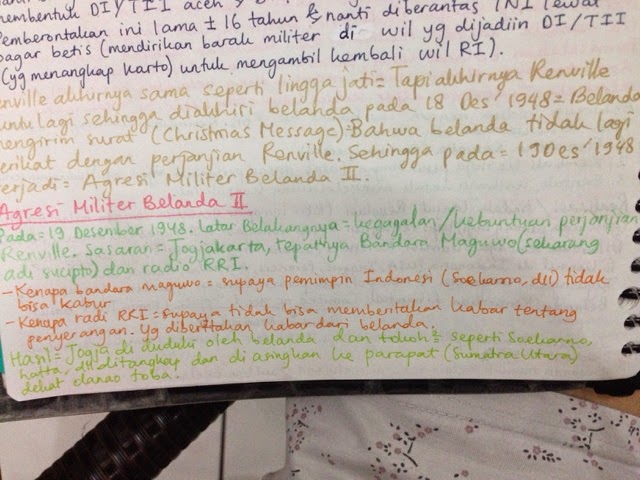 membentuk DI/TII aceh &
Pemberontakan ini lama ± 16 tahun & nanti diberantas TNI lewat
pagar betis (mendirikan barak militer di wil yg dijadiin DI/TII
(yg menangkap karto) untuk mengambil kembali wil RI).
enville akhirnya sama seperti linggajati = Tapi akhirnya Renville
untu lagi sehingga diakhiri belanda pada 18 Des' 1948 = Belanda
engirim surat (Christmas Message) = Bahwa belanda tidak lagi
erikat dengan perjanjian Renville. Sehingga pada = 19 Des' 1948
erjadi = Agresi Militer Belanda II.
Agresi Militer Belanda II
Pada = 19 Desember 1948. Latar Belakangnya = kegagalan / kebuntuan perjanjian
Renville. Sasaran = Jogjakarta, tepatnya Bandara Maguwo (sekarang
adi sucipto) dan radio RRI.
- Kenapa bandara maguwo = supaya pemimpin Indonesi (Soekarno, dll) tidak
bisa kabur
- Kenapa radi RRI = supaya tidak bisa memberitakan kabar tentang
penyerangan. Yg diberitakan kabar dari belanda.
Hasil = Jogja di duduki oleh belanda dan tokoh² seperti Soekarno,
hatta, dll ditangkap dan di asingkan ke parapat (Sumatra Utara)
dekat danao toba.